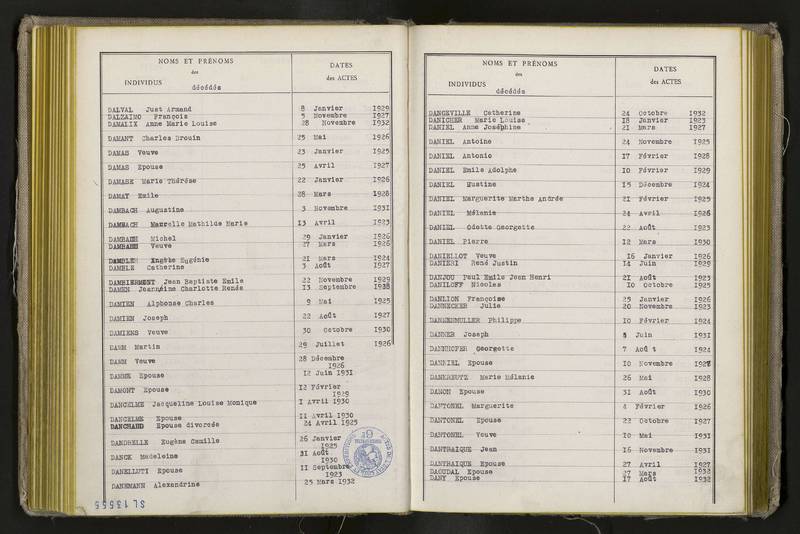 NOMS ET PRÉNOMS
des
INDIVIDUS décédés
DATES
des ACTES
DALVAL Just Armand 8 Janvier 1929
DALZAIMO François 5 Novembre 1927
DAMALIX Anne Marie Louise 28 Novembre 1932
DAMANT Charles Drouin 25 Mai 1926
DAMAS Veuve 23 Janvier 1925
DAMAS Epouse 25 Avril 1927
DAMASE Marie Thérèse 22 Janvier 1926
DAMAY Emile 28 Mars 1928
DAMBACH Augustine 3 Novembre 1931
DAMBACH Marcelle Mathilde Marie 13 Avril 1923
Michel 29 Janvier 1926
Veuve 27 Mars 1926
DAMBLE Eugénie 21 Mars 1924
DAMBLE Catherine 3 Août 1927
DAMBIERMONT Jean Baptiste Emile 22 Novembre 1929
DAMEN Jeannine Charlotte Renée 13 Septembre 1938
DAMIEN Alphonse Charles 9 Mai 1925
DAMIEN Joseph 22 Août 1927
DAMIENS Veuve 30 Octobre 1930
DAMM Martin 29 Juillet 1926
DAMM Veuve 28 Décembre
1926
DAMME Epouse 12 Juin 1931
DAMONT Epouse 12 Février
1929
DANCELME Jacqueline Louise Monique 1 Avril 1930
DANCELME Epouse 11 Avril 1930
DANCHAUD Epouse divorcée 24 Avril 1925
DANDRELLE Eugène Camille 26 Janvier
1925
DANCE Madeleine 31 Août
1930
DANELLUTI Epouse 11 Septembre
1923
DANEMANN Alexandrine 25 Mars 1932
SL 13555
NOMS ET PRÉNOMS
des
INDIVIDUS décédés
DATES
des ACTES
DANGEVILLE Catherine 24 Octobre 1932
DANICHER Marie Louise 18 Janvier 1923
DANIEL Anne Joséphine 21 Mars 1927
DANIEL Antoine 24 Novembre 1925
DANIEL Antonio 17 Février 1928
DANIEL Emile Adolphe 10 Février 1929
DANIEL Eustine 15 Décembre 1924
DANIEL Marguerite Marthe Andrée 21 Février 1925
DANIEL Mélanie 24 Avril 1926
DANIEL Odette Georgette 22 Août 1923
DANIEL Pierre 12 Mars 1930
DANIELLOT Veuve 16 Janvier 1926
DANIERI René Justin 14 Juin 1929
DANJOU Paul Emile Jean Henri 21 Août 1923
DANILOFF Nicolas 10 Octobre 1925
DANLION Françoise 25 Janvier 1926
DANNECKER Julie 20 Novembre 1923
DANNENMULLER Philippe 10 Février 1924
DANNER Joseph 8 Juin 1931
DANNHOFER Georgette 7 Août 1924
DANNIEL Epouse 10 Novembre 1927
DANKREUTZ Marie Mélanie 26 Mai 1928
DANON Epouse 31 Août 1930
DANTONEL Marguerite 4 Février 1926
DANTONEL Epouse 22 Octobre 1927
DANTONEL Veuve 10 Mai 1931
DANTHAIQUE Jean 16 Novembre 1931
DANTHAIQUE Epouse 27 Avril 1927
DAOUDAL Epouse 27 Mars 1932
DANY Epouse 17 Août 1932